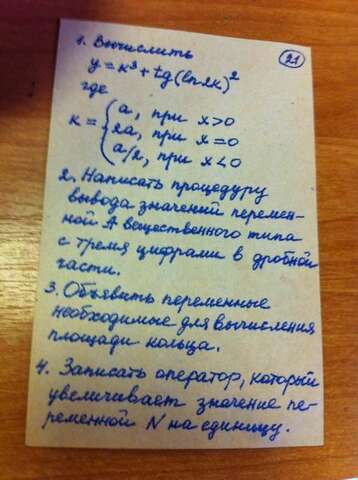 21
1. Вычислить
y = k³ + tg(ln2k)²
где
k = { a, при x>0
2a, при x=0
a/2, при x<0
2. Написать процедуру
вывода значений перемен-
ной A вещественного типа
с тремя цифрами в дробной
части.
3. Объявить переменные
необходимые для вычисления
площади кольца.
4. Записать оператор, который
увеличивает значение пе-
ременной N на единицу.